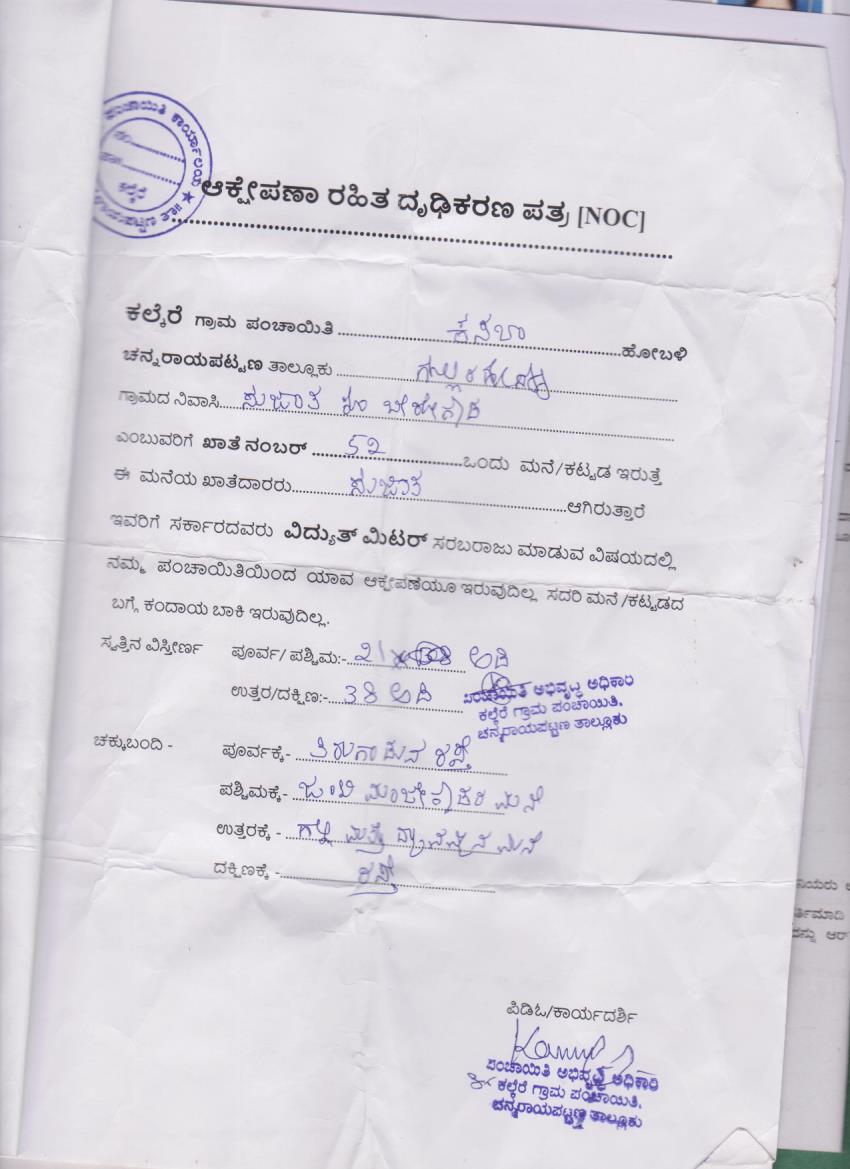 ಪಂಚಾಯಿತಿ ಕಾರ್ಯಾಲಯ ★
ಕಲ್ಕೆರೆ
ಆಕ್ಷೇಪಣಾ ರಹಿತ ದೃಢಿಕರಣ ಪತ್ರ [NOC]
ಕಲ್ಕೆರೆ ಗ್ರಾಮ ಪಂಚಾಯಿತಿ ಕಸಬಾ ಹೋಬಳಿ
ಚನ್ನರಾಯಪಟ್ಟಣ ತಾಲ್ಲೂಕು
ಗ್ರಾಮದ ನಿವಾಸಿ ಸುಜಾತ
ಎಂಬುವರಿಗೆ ಖಾತೆ ನಂಬರ್ 52 ಒಂದು ಮನೆ/ಕಟ್ಟಡ ಇರುತ್ತೆ
ಈ ಮನೆಯ ಖಾತೆದಾರರು ಸುಜಾತ ಆಗಿರುತ್ತಾರೆ
ಇವರಿಗೆ ಸರ್ಕಾರದವರು ವಿದ್ಯುತ್ ಮಿಟರ್ ಸರಬರಾಜು ಮಾಡುವ ವಿಷಯದಲ್ಲಿ
ನಮ್ಮ ಪಂಚಾಯಿತಿಯಿಂದ ಯಾವ ಆಕ್ಷೇಪಣೆಯೂ ಇರುವುದಿಲ್ಲ ಸದರಿ ಮನೆ/ಕಟ್ಟಡದ
ಬಗ್ಗೆ ಕಂದಾಯ ಬಾಕಿ ಇರುವುದಿಲ್ಲ.
ಸ್ವತ್ತಿನ ವಿಸ್ತೀರ್ಣ ಪೂರ್ವ/ ಪಶ್ಚಿಮ:- 21 ಅಡಿ
ಉತ್ತರ/ದಕ್ಷಿಣ:- 38 ಅಡಿ
ಪಂಚಾಯಿತಿ ಅಭಿವೃದ್ಧಿ ಅಧಿಕಾರಿ
ಕಲ್ಕೆರೆ ಗ್ರಾಮ ಪಂಚಾಯಿತಿ,
ಚನ್ನರಾಯಪಟ್ಟಣ ತಾಲ್ಲೂಕು
ಚಕ್ಕುಬಂದಿ - ಪೂರ್ವಕ್ಕೆ- ತಿರುಗಾಡುವ ರಸ್ತೆ
ಪಶ್ಚಿಮಕ್ಕೆ- ಮನೆ
ಉತ್ತರಕ್ಕೆ - ಗಲ್ಲಿ ಮತ್ತು ಮನೆ
ದಕ್ಷಿಣಕ್ಕೆ - ರಸ್ತೆ
ಪಿಡಿಓ/ಕಾರ್ಯದರ್ಶಿ
ಪಂಚಾಯಿತಿ ಅಭಿವೃದ್ಧಿ ಅಧಿಕಾರಿ
ಕಲ್ಕೆರೆ ಗ್ರಾಮ ಪಂಚಾಯಿತಿ,
ಚನ್ನರಾಯಪಟ್ಟಣ ತಾಲ್ಲೂಕು